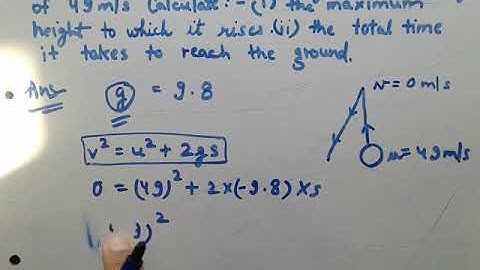 of 49 m/s Calculate:- (i) the maximum
height to which it rises. (ii) the total time
it takes to reach the ground.
Ans g = 9.8
v = 0 m/s
v² = u² + 2gs
u = 49 m/s
0 = (49)² + 2×(-9.8) × s
9)²